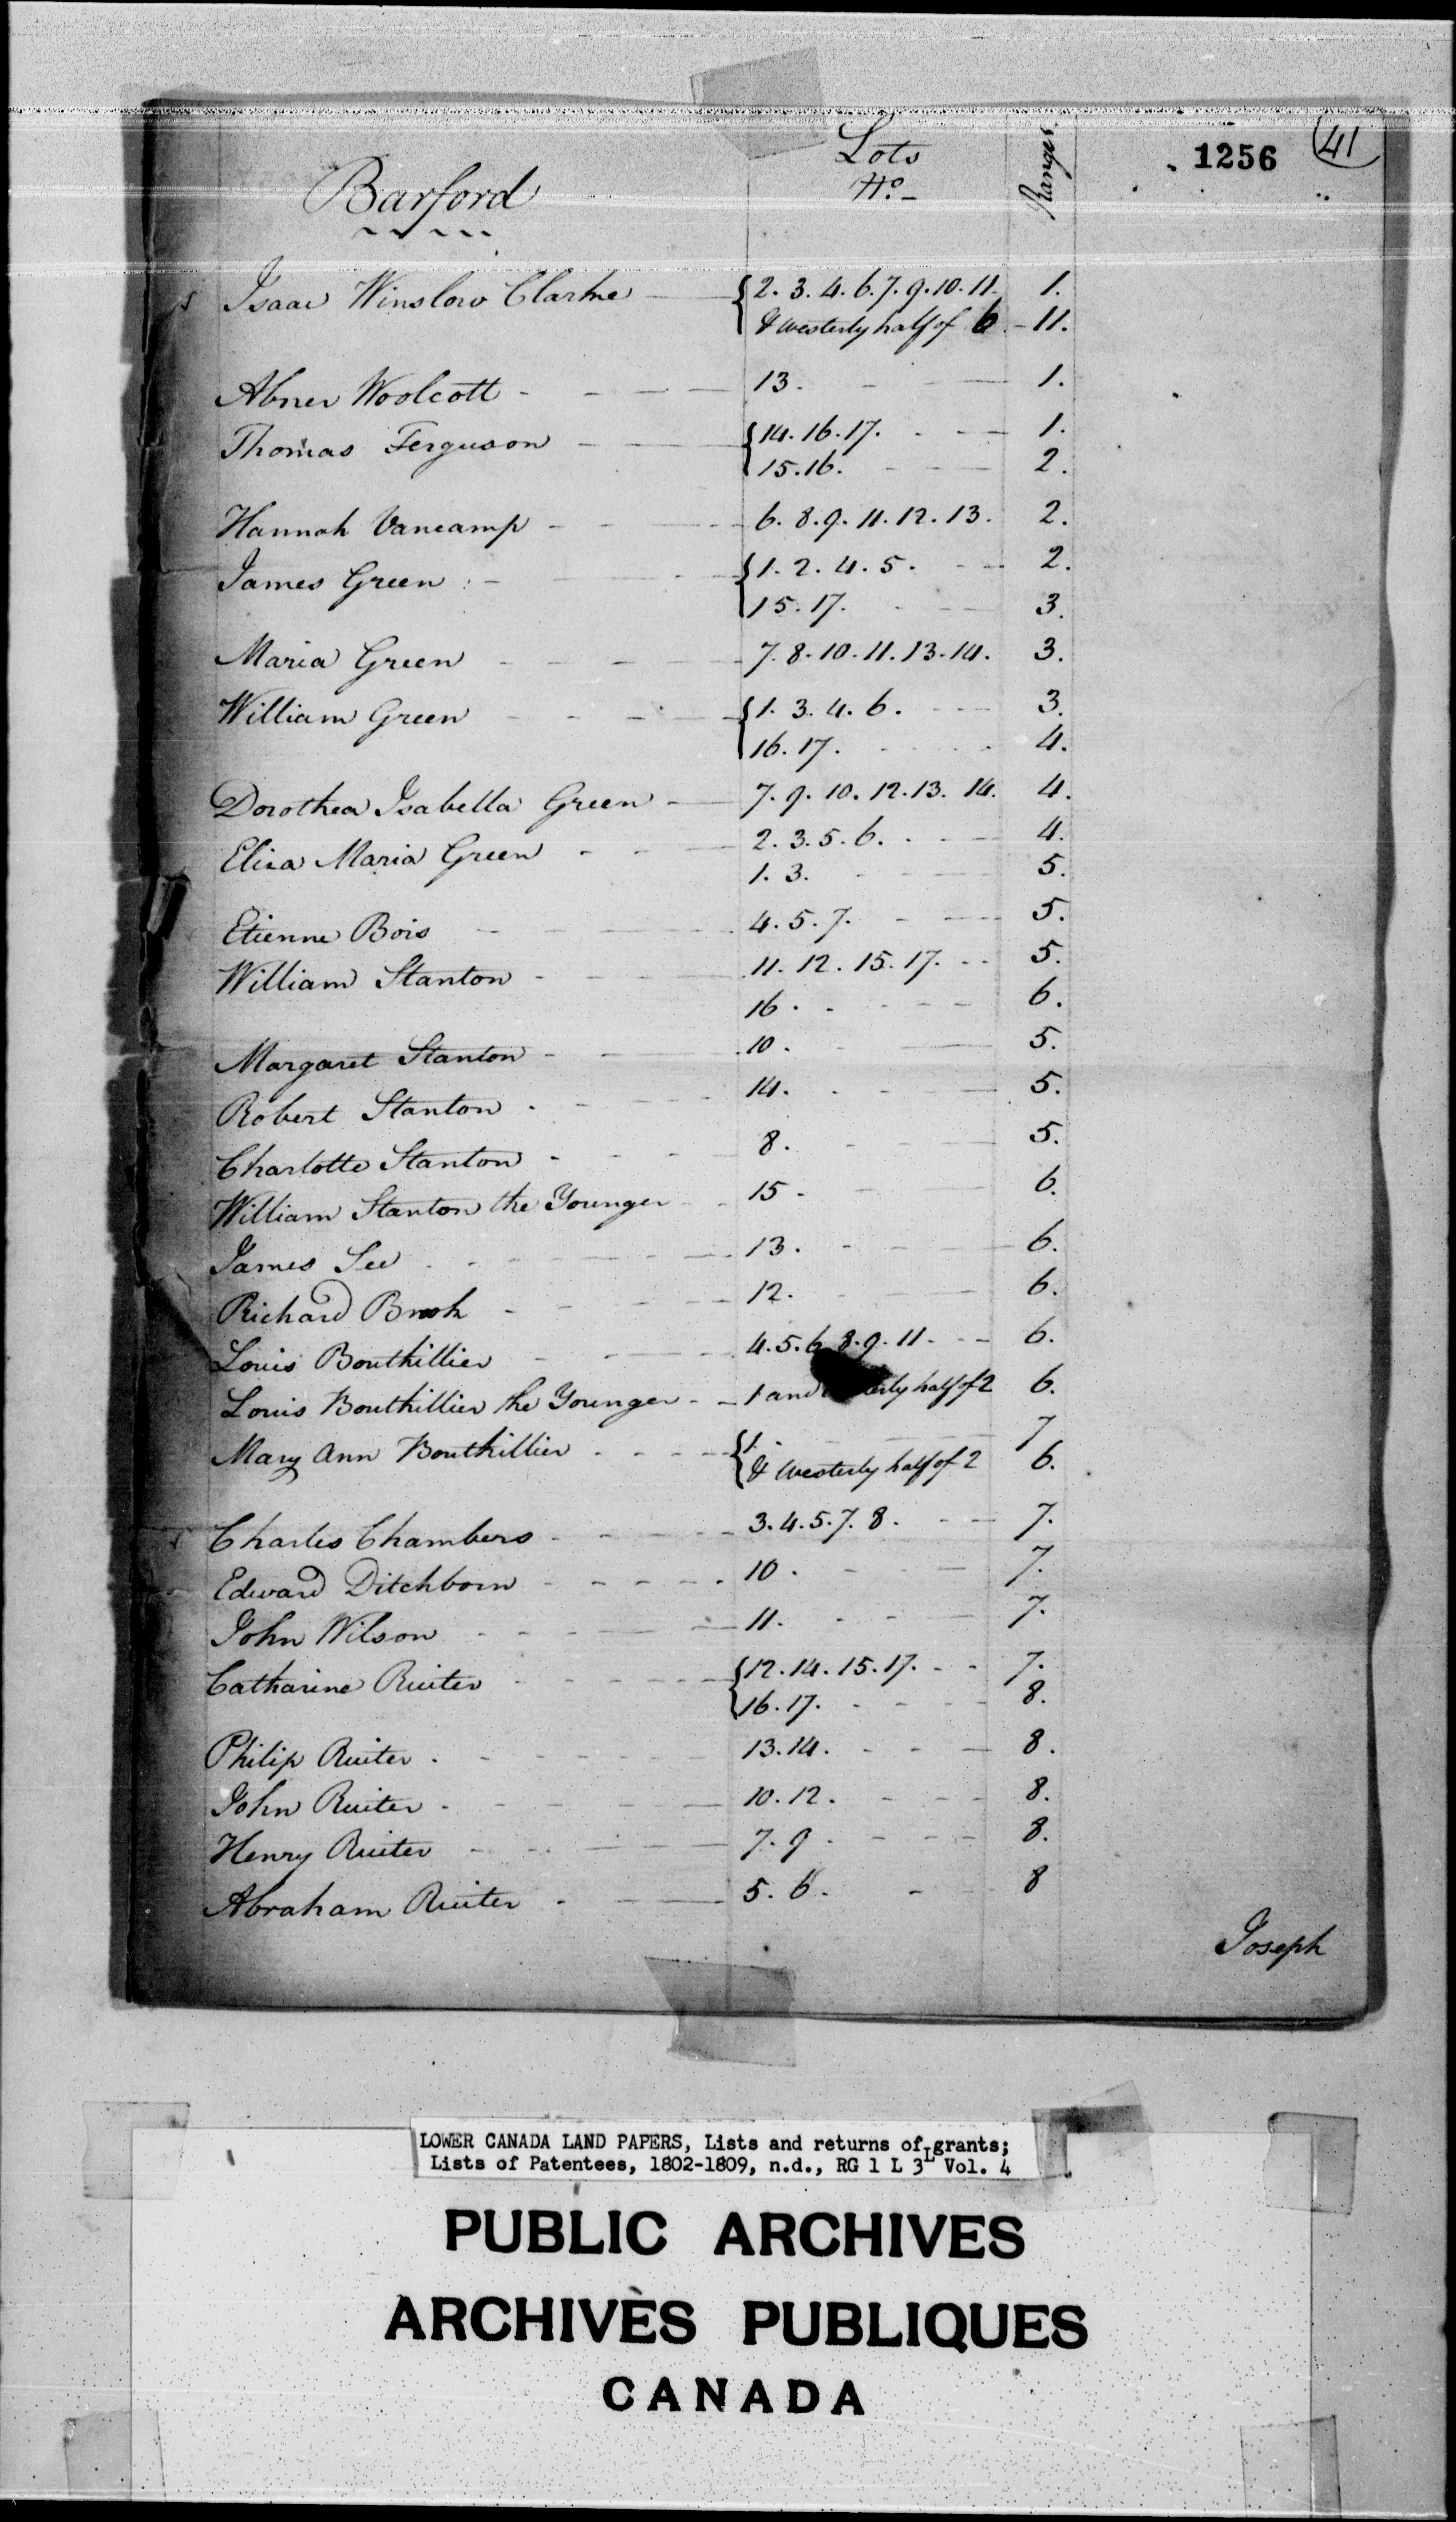 1256 41
Barford Lots No. Ranges.
Isaac Winslow Clarke 2. 3. 4. 6. 7. 9. 10. 11. 1.
& westerly half of 6. 11.
Abner Woolcott 13. 1.
Thomas Ferguson 14. 16. 17. 1.
15. 16. 2.
Hannah Vancamp 6. 8. 9. 11. 12. 13. 2.
James Green 1. 2. 4. 5. 2.
15. 17. 3.
Maria Green 7. 8. 10. 11. 13. 14. 3.
William Green 1. 3. 4. 6. 3.
16. 17. 4.
Dorothea Isabella Green 7. 9. 10. 12. 13. 14. 4.
Eliza Maria Green 2. 3. 5. 6. 4.
1. 3. 5.
Etienne Bois 4. 5. 7. 5.
William Stanton 11. 12. 15. 17. 5.
16. 6.
Margaret Stanton 10. 5.
Robert Stanton 14. 5.
Charlotte Stanton 8. 5.
William Stanton the Younger 15. 6.
James See 13. 6.
Richard 12. 6.
Louis Bouthillier 4. 5. 6. 8. 9. 11. 6.
Louis Bouthillier the Younger 1 and half of 2 6.
Mary Ann Bouthillier 1. 7
& Westerly half of 2 6.
Charles Chambers 3. 4. 5. 7. 8. 7.
Edward Ditchborn 10. 7.
John Wilson 11. 7.
Catharine Ruiter 12. 14. 15. 17. 7.
16. 17. 8.
Philip Ruiter 13. 14. 8.
John Ruiter 10. 12. 8.
Henry Ruiter 7. 9 8.
Abraham Ruiter 5. 6. 8
Joseph
LOWER CANADA LAND PAPERS, Lists and returns of grants;
Lists of Patentees, 1802-1809, n.d., RG 1 L 3L Vol. 4
PUBLIC ARCHIVES
ARCHIVES PUBLIQUES
CANADA